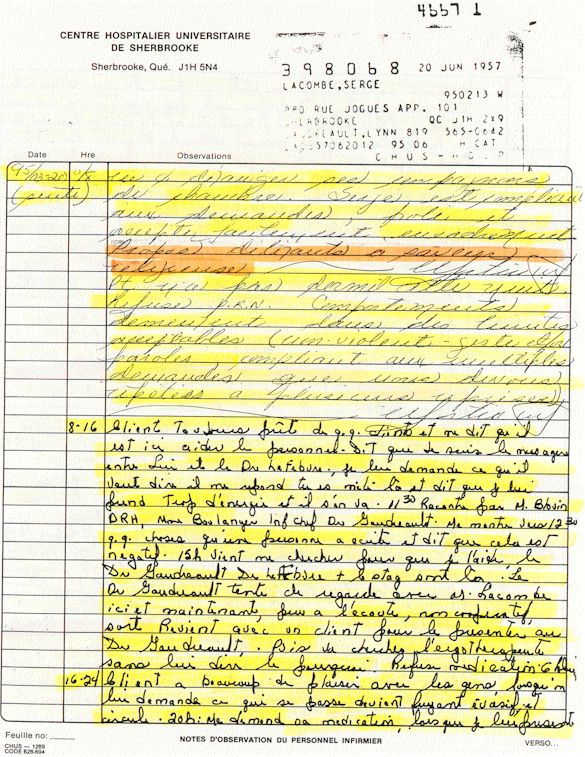 4667 1
CENTRE HOSPITALIER UNIVERSITAIRE
DE SHERBROOKE
Sherbrooke, Qué. J1H 5N4
398068 20 JUN 1957
LACOMBE, SERGE
950213 W
RUE JOGUES APP. 101
SHERBROOKE QC J1H 2X9
LYNN 819 565-0642
57062012 95 06 H CAT
CHUS-HO
Date Hre Observations
95/03-20 0/8 ses compagnons
(suite) de chambre. Sujet est
aux demandes, poli et
accepte facilement encadrement
Propos délirants à saveur
religieuse
N'a pas dormi
Refuse P.R.N. Comportements
demeurent dans des limites
acceptables (non-violent - gestes
paroles compliant aux multiples
demandes que nous devons
répéter à plusieurs reprises
8-16 Client toujours et me dit qu'il
est ici aider le personnel. Dit que je suis le messager
entre lui et le Dr Lefebvre, je lui demande ce qu'il
veut dire il me répond tu es là et dit que je lui
prend trop d'énergie et il s'en va. 11:30 Rencontré par M. Blouin
DRH, Mme Boulanger Inf chef Dr Gaudreault. Me montre vers 12:30
q.q. choses qu'une personne a écrite et dit que cela est
négatif. 15h Vient me chercher pour que je l'aide, le
Dr Gaudreault Dr Lefebvre + le stag sont là. Le
Dr Gaudreault tente de avec M. Lacombe
ici et maintenant, peu à l'écoute, non
sort Revient avec un client pour le présenter au
Dr Gaudreault. Puis va chercher l'ergothérapeute
sans lui dire le pourquoi. Refuse médication
16-24 Client a beaucoup de plaisir avec les gens, lorsqu'on
lui demande ce qui se passe devient fuyant évasif et
circule. 20h: Me demande sa médication, lorsque je lui présente
Feuille no:
CHUS — 1269
CODE 626-694
NOTES D'OBSERVATION DU PERSONNEL INFIRMIER
VERSO...